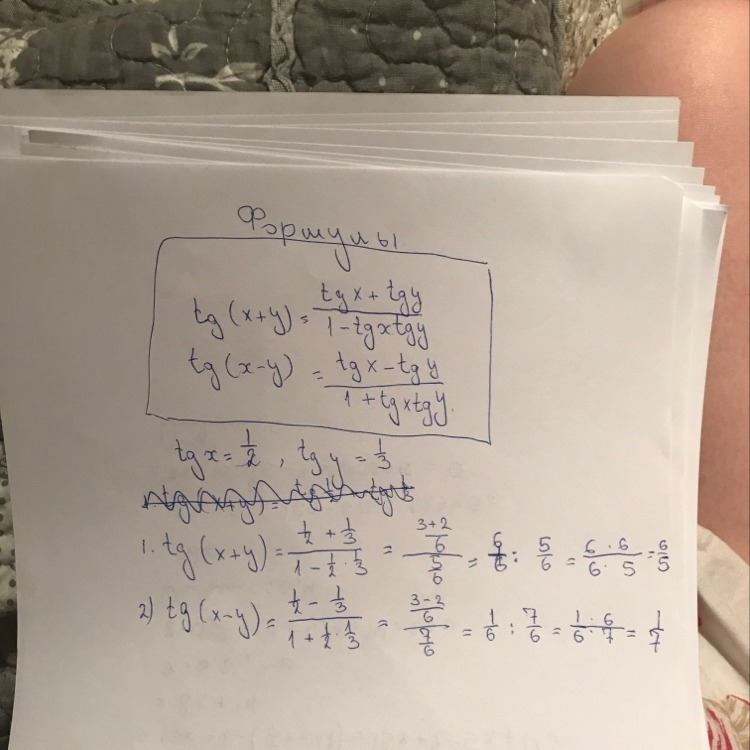 Формулы
tg (x+y) = (tg x + tg y)/(1 - tg x tg y)
tg (x-y) = (tg x - tg y)/(1 + tg x tg y).
tg x = 1/2 , tg y = 1/3
1. tg (x+y) = (1/2 + 1/3)/(1 - 1/2 · 1/3) = ((3+2)/6)/(5/6) = 6/6 : 5/6 = (6 · 6)/(6 · 5) = 6/5
2) tg (x-y) = (1/2 - 1/3)/(1 + 1/2 · 1/3) = ((3-2)/6)/(7/6) = 1/6 : 7/6 = (1 · 6)/(6 · 7) = 1/7